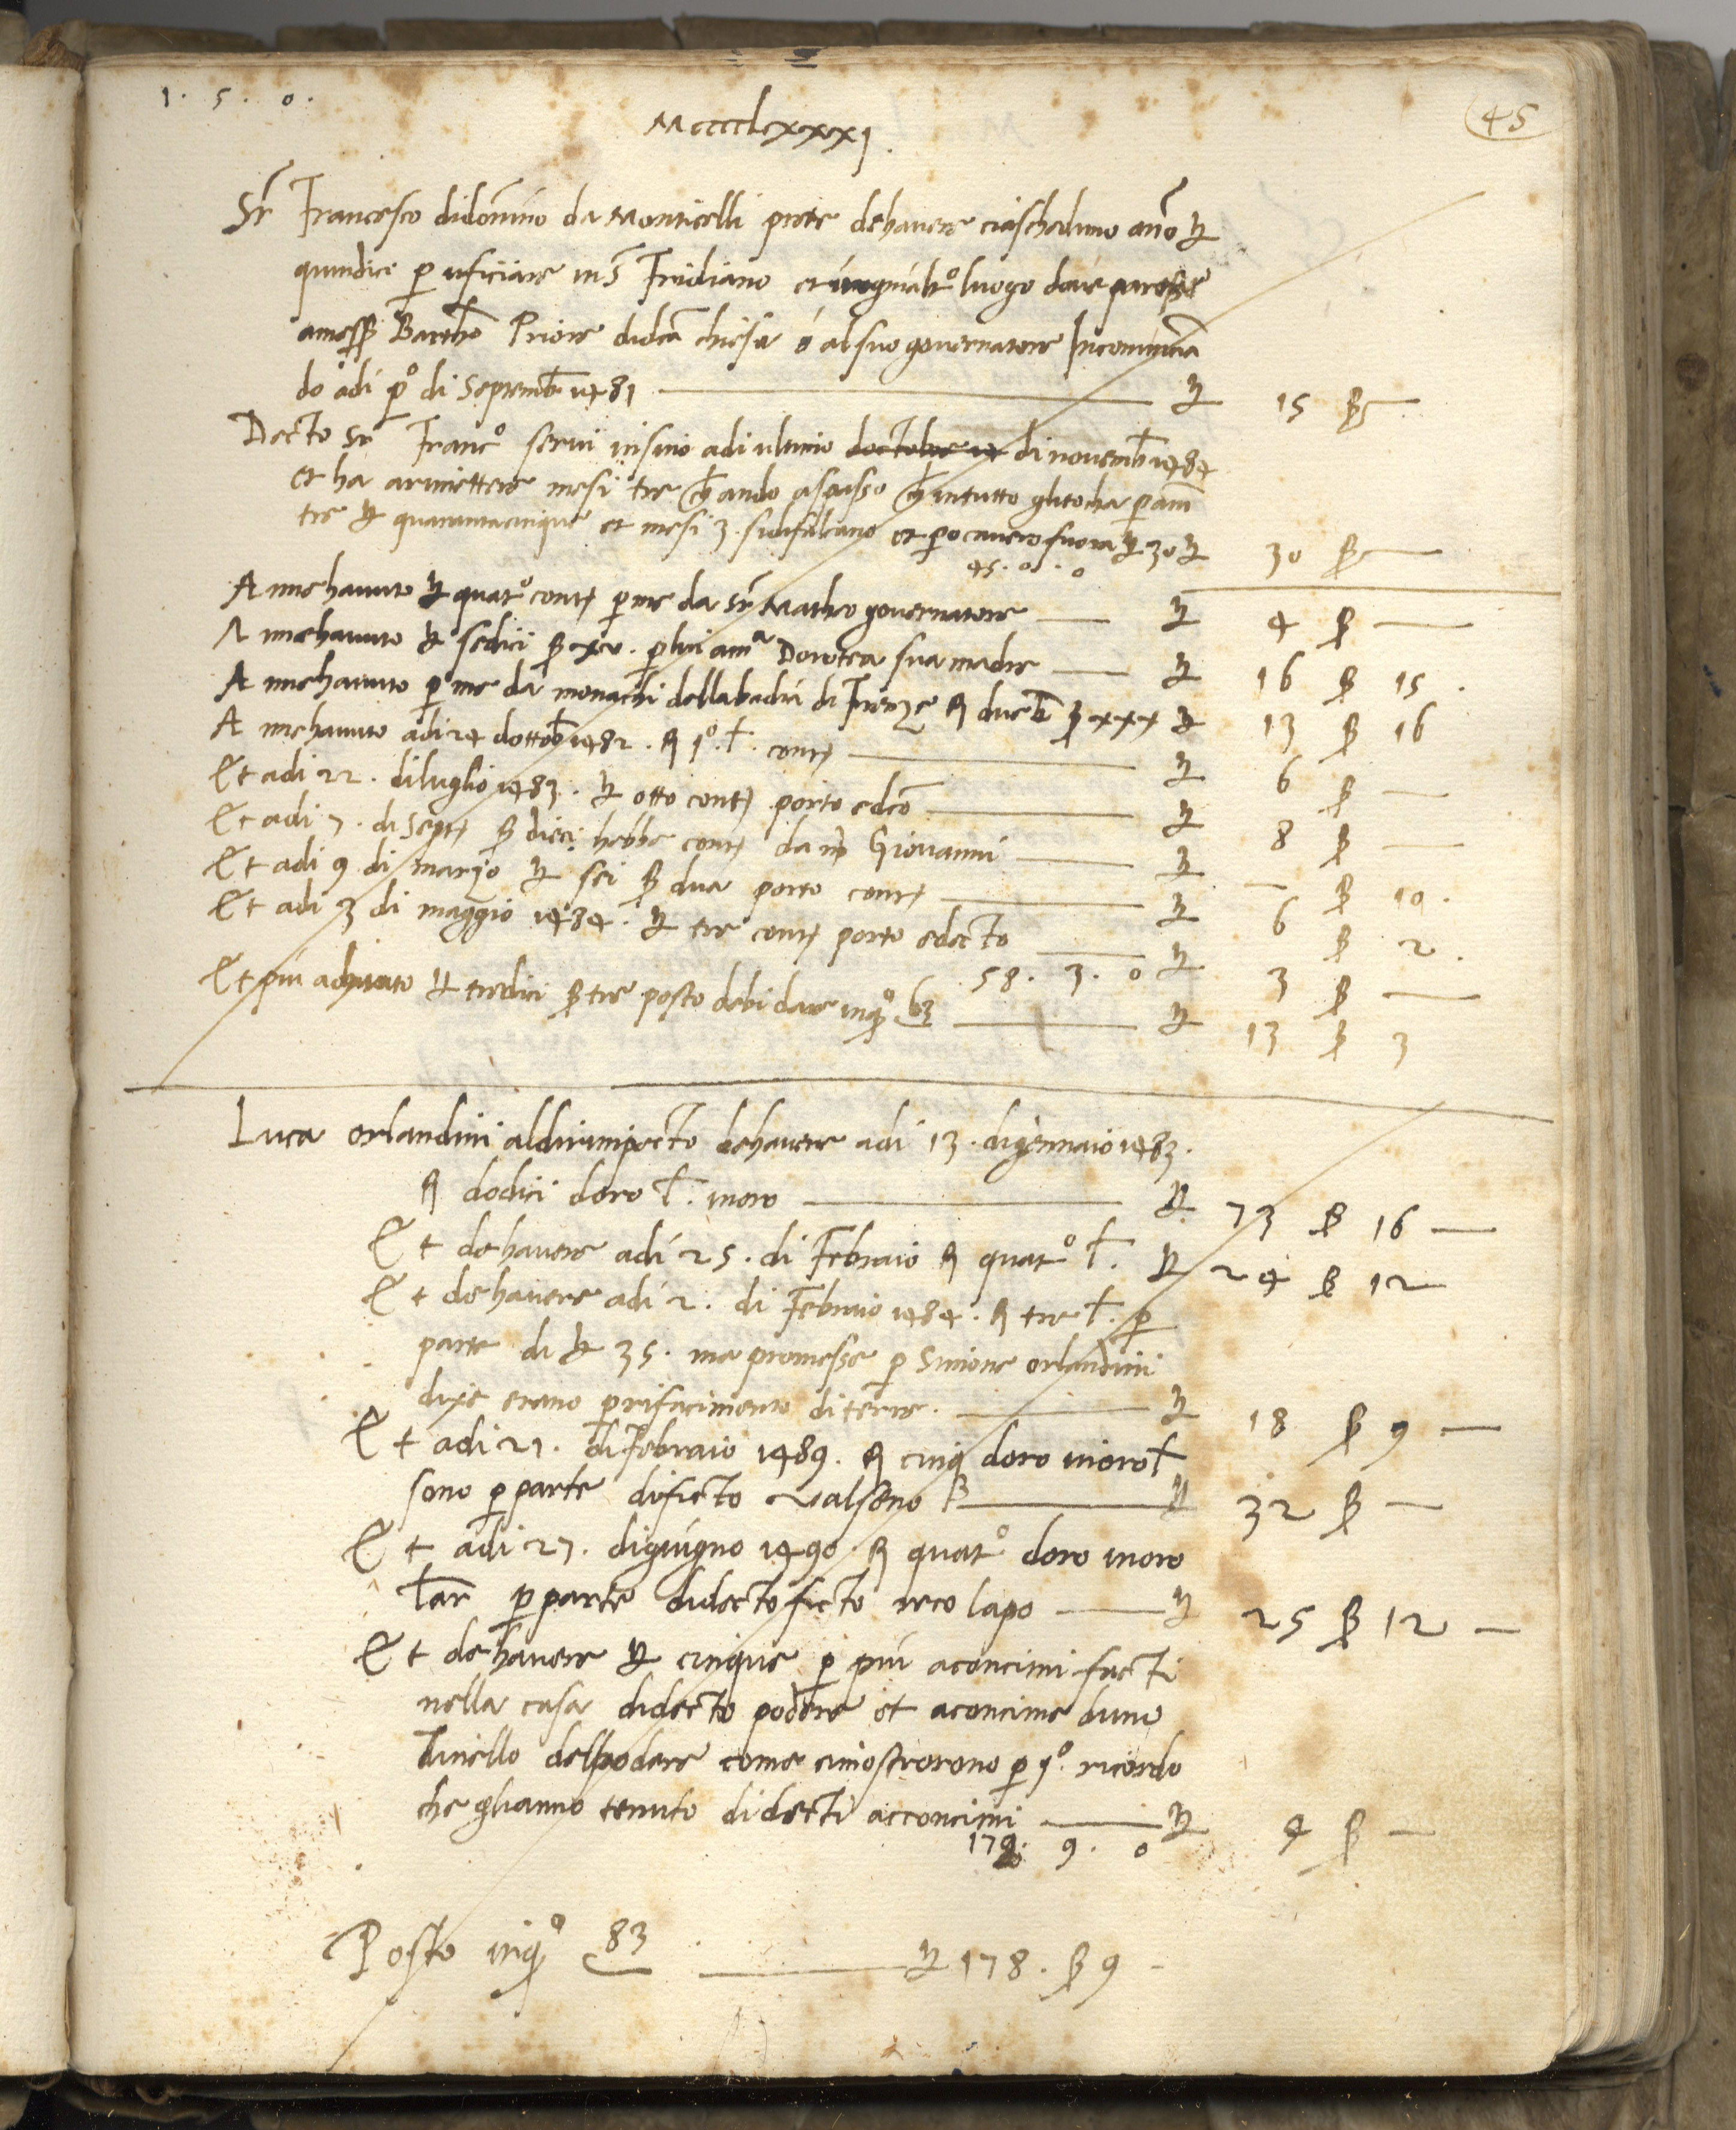 1. 5. 0.
45
Mcccclxxxj.
Sr Francesco didomino da Monticelli prete dehavere ciascheduno ano ₶
quindici p uficiare in S Fridiano et in gnialto luogo dove paresse
amess Bartho Priore didca chiesa o alsuo governatore Incomincia
do adi po di Septemb 1481 ₶ 15 ß
Decto Sr Franco servi insino adi ultimo doctobre 14 di novemb 1484
et ha arimettere mesi tre ando aspasso intutto glitocha p ani
tre ₶ quarantacinque et mesi 3. sidifalcano et po cavero fuora ₶ 30 ₶ 30 ß
45. 0. 0
A nne havuto ₶ quato cont p me da Sr Matheo governatore ₶ 4 ß
A nnehavuto ₶ sedici ß xv. p lui a ma Dorotea sua madre ₶ 16 ß 15.
A nnehavuto p me da monachi dellabadia di Firenze duc xxx ₶ 13 ß 16
A nnehavuto adi 24 dottob 1482. 1o. l. cont ₶ 6 ß
Et adi 22. diluglio 1483. ₶ otto cont porto edco ₶ 8 ß
Et adi 7. di Sept ß dieci hebbe cont da Giovanni ₶ — ß 10.
Et adi 9 di marzo ₶ sei ß dua porto cont ₶ 6 ß 2.
Et adi 3 di maggio 1484. ₶ tre cont porto edecto ₶ 3 ß
58. 3. 0
Et piu ₶ tredici ß tre posto debi dare inqo 63 ₶ 13 ß 3
Luca orlandini aldirimpecto dehavere adi 13. digennaio 1483.
dodici doro l. inoro ₶ 73 ß 16
Et dehavere adi 25. di Febraio quato l. ₶ 24 ß 12
Et dehavere adi 2. di Febraio 1484. tre l. p
parte di ₶ 35. ma promesse p Simone orlandini
dixe erano p rifacimento di terre. ₶ 18 ß 9
Et adi 21. di Febraio 1489. cinq doro inoro l
sono p parte dificto valseno ₶ 32 ß
Et adi 27. digiugno 1490. quato doro inoro
lar p parte didecto ficto reco lapo ₶ 25 ß 12
Et dehavere ₶ cinque p piu aconcimi facti
nella casa didecto podere et aconcime duno
tinello delpodere come cimostrorono p 1o. ricordo
che glianno tenuto didecti acconcimi ₶ 4 ß
178. 9. 0
Posto inqo 83 ₶ 178. ß 9